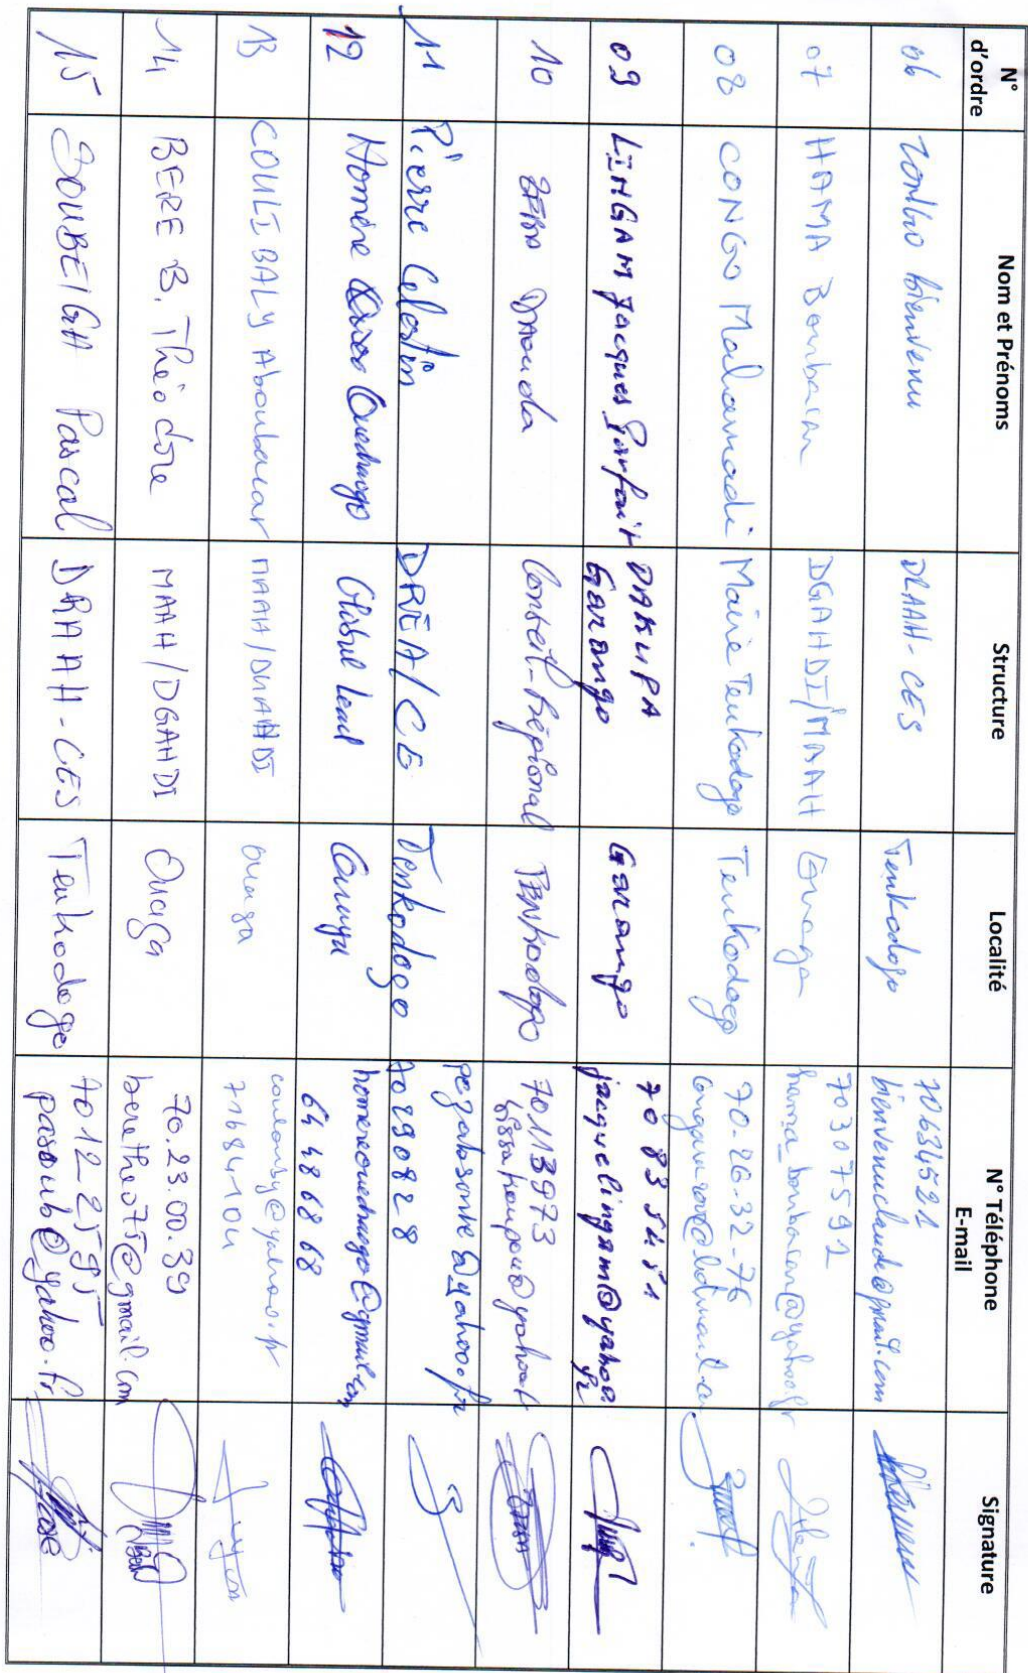 N° d'ordre Nom et Prénoms Structure Localité N° Téléphone E-mail Signature
06 Zombo bienvenu DRAAH-CES Tenkodogo 70634521
bienvenuclaude@gmail.com
07 HAMA Boubacar DGAHDI/MAAH Ouaga 70307592
hama_boubacar@yahoo.fr
08 CONGO Mahamadi Mairie Tenkodogo Tenkodogo 70-26-32-76
09 LINGAM Jacques Parfait DPAHPA Garango Garango 70 83 54 51
jacquelingam@yahoo.fr
10 Daouda Conseil-Régional TENKODOGO 70113973
11 Pierre Celestin DREA/CE Tenkodogo
70290828
12 Homère Ouedraogo Global Lead Ouaga homereouedraogo@gmail.com
64 48 68 68
13 COULIBALY Aboubacar MAAH/DGAHDI Ouaga
71684104
14 BERE B. Théodore MAAH/DGAHDI Ouaga 70.23.00.39
beretheo75@gmail.com
15 SOUBEIGA Pascal DRAAH-CES Tenkodogo 70122595
pasoub@yahoo.fr